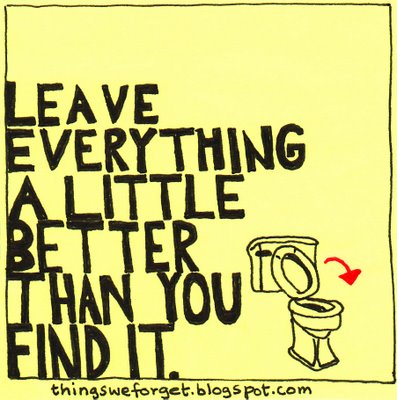 LEAVE
EVERYTHING
A LITTLE
BETTER
THAN YOU
FIND IT.
thingsweforget.blogspot.com